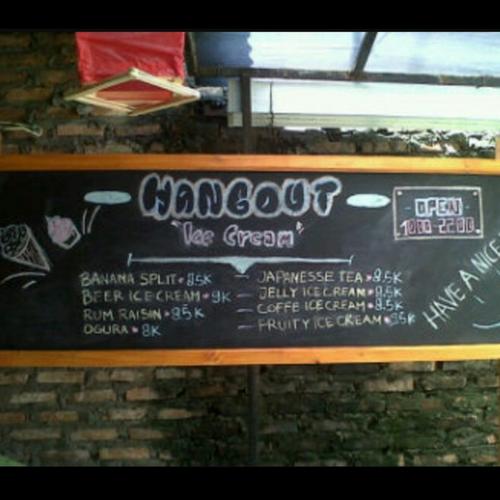 HANGOUT
"Ice Cream"
OPEN
1000-2200
BANANA SPLIT • 8.5K
BEER ICE CREAM • 9K
RUM RAISIN • 8.5K
OGURA • 8K
JAPANESSE TEA • 8.5K
JELLY ICE CREAM • 8.5K
COFFE ICE CREAM • 8.5K
FRUITY ICE CREAM • 8.5K
HAVE A NICE